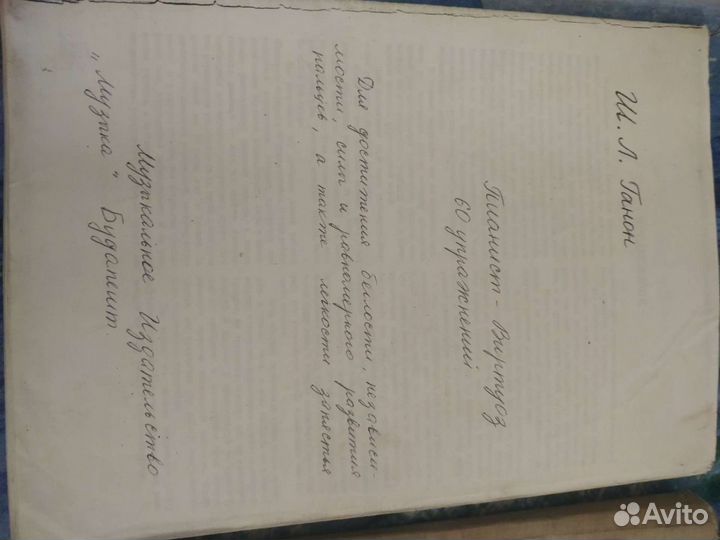 Ш. Л. Ганон
Пианист - Виртуоз
60 упражнений
Для достижения беглости, независи-
мости, силы и равномерного развития
пальцев, а также легкости запястья
Музыкальное Издательство
„Музыка" Будапешт
Avito